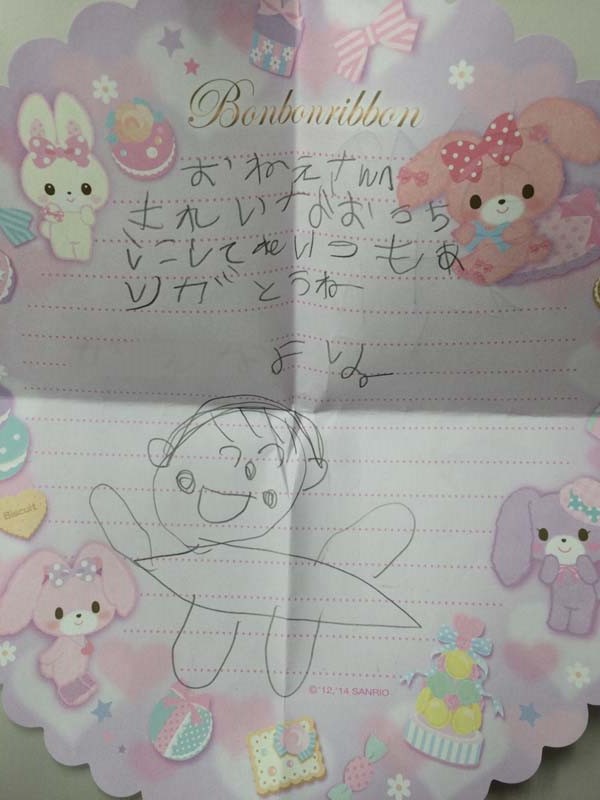 Bonbonribbon
おねえさんへ
きれいなおうち
にしてねいつもあ
りがとうね
よしな
Biscuit
©'12,'14 SANRIO